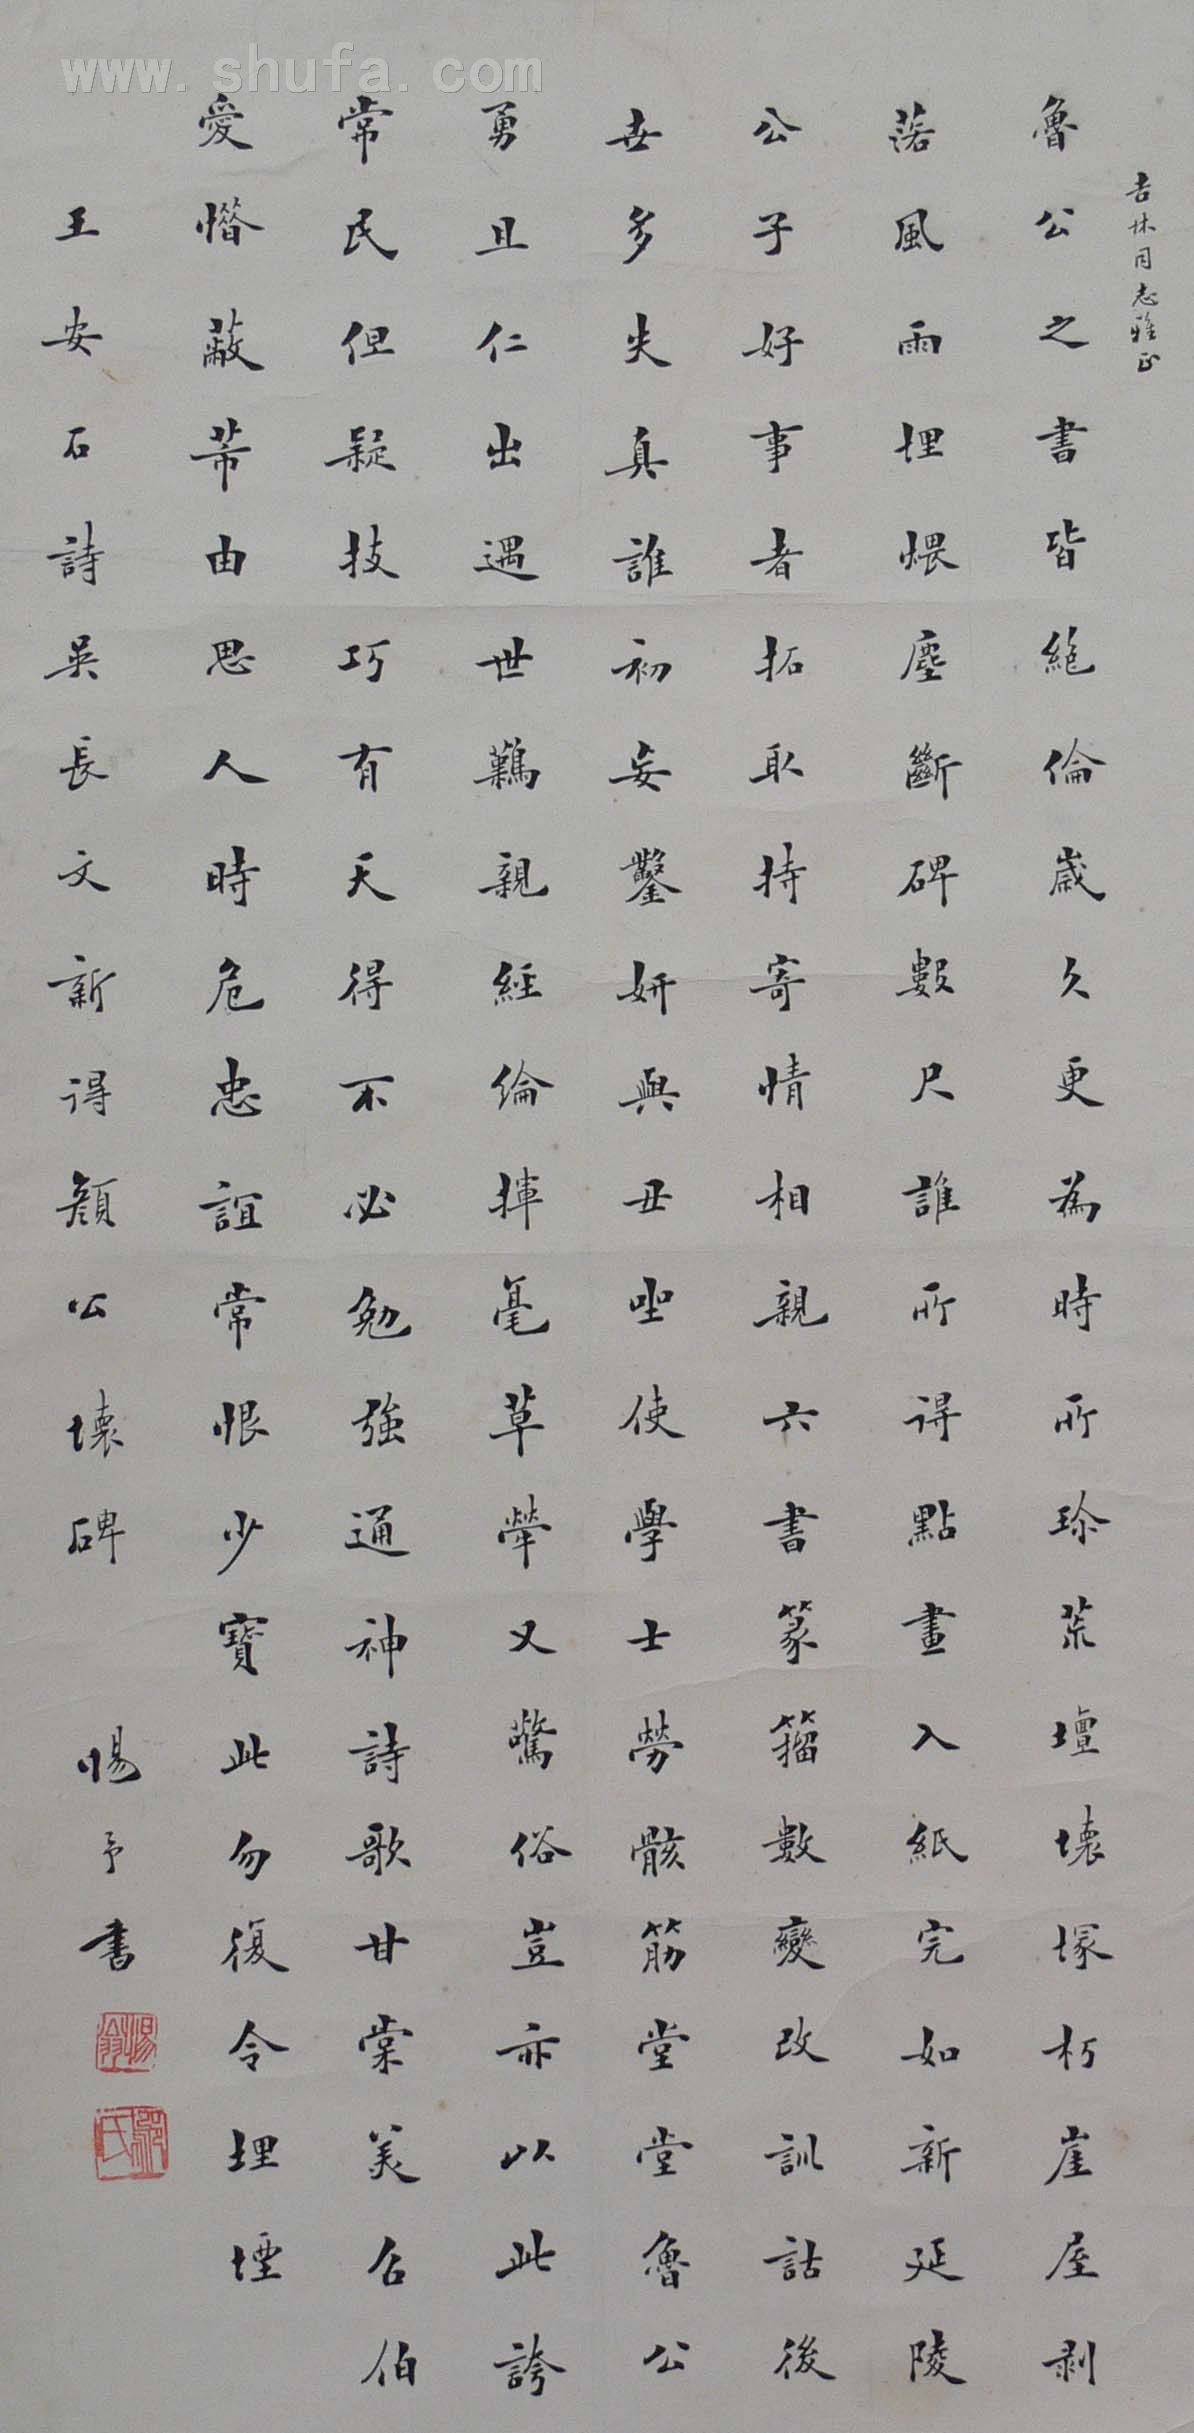 www.shufa.com
吉林同志雅正
魯公之書皆絕倫歲久更為時所珍荒壇壞塚朽崖屋剥
落風雨埋煨塵斷碑數尺誰所得點畫入紙完如新延陵
公子好事者拓取持寄情相親六書篆籀數變改訓詁後
世多失真誰初妄鑿妍與丑坐使學士勞骸筋堂堂魯公
勇且仁出遇世難親經綸揮毫草犖又驚俗豈亦以此誇
常民但疑技巧有天得不必勉強通神詩歌甘棠美召伯
愛惜蔽芾由思人時危忠誼常恨少寶此勿復令埋堙
王安石詩吳長文新得顏公壞碑 惕予書
惕翁
氏